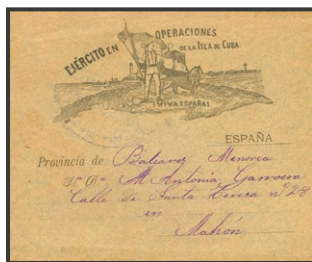 EJÉRCITO EN OPERACIONES
DE LA ISLA DE CUBA.
¡VIVA ESPAÑA!
ESPAÑA
Provincia de Baleares Menorca
Sra Da M Antonia
Calle de Santa nº 28
en
Mahón